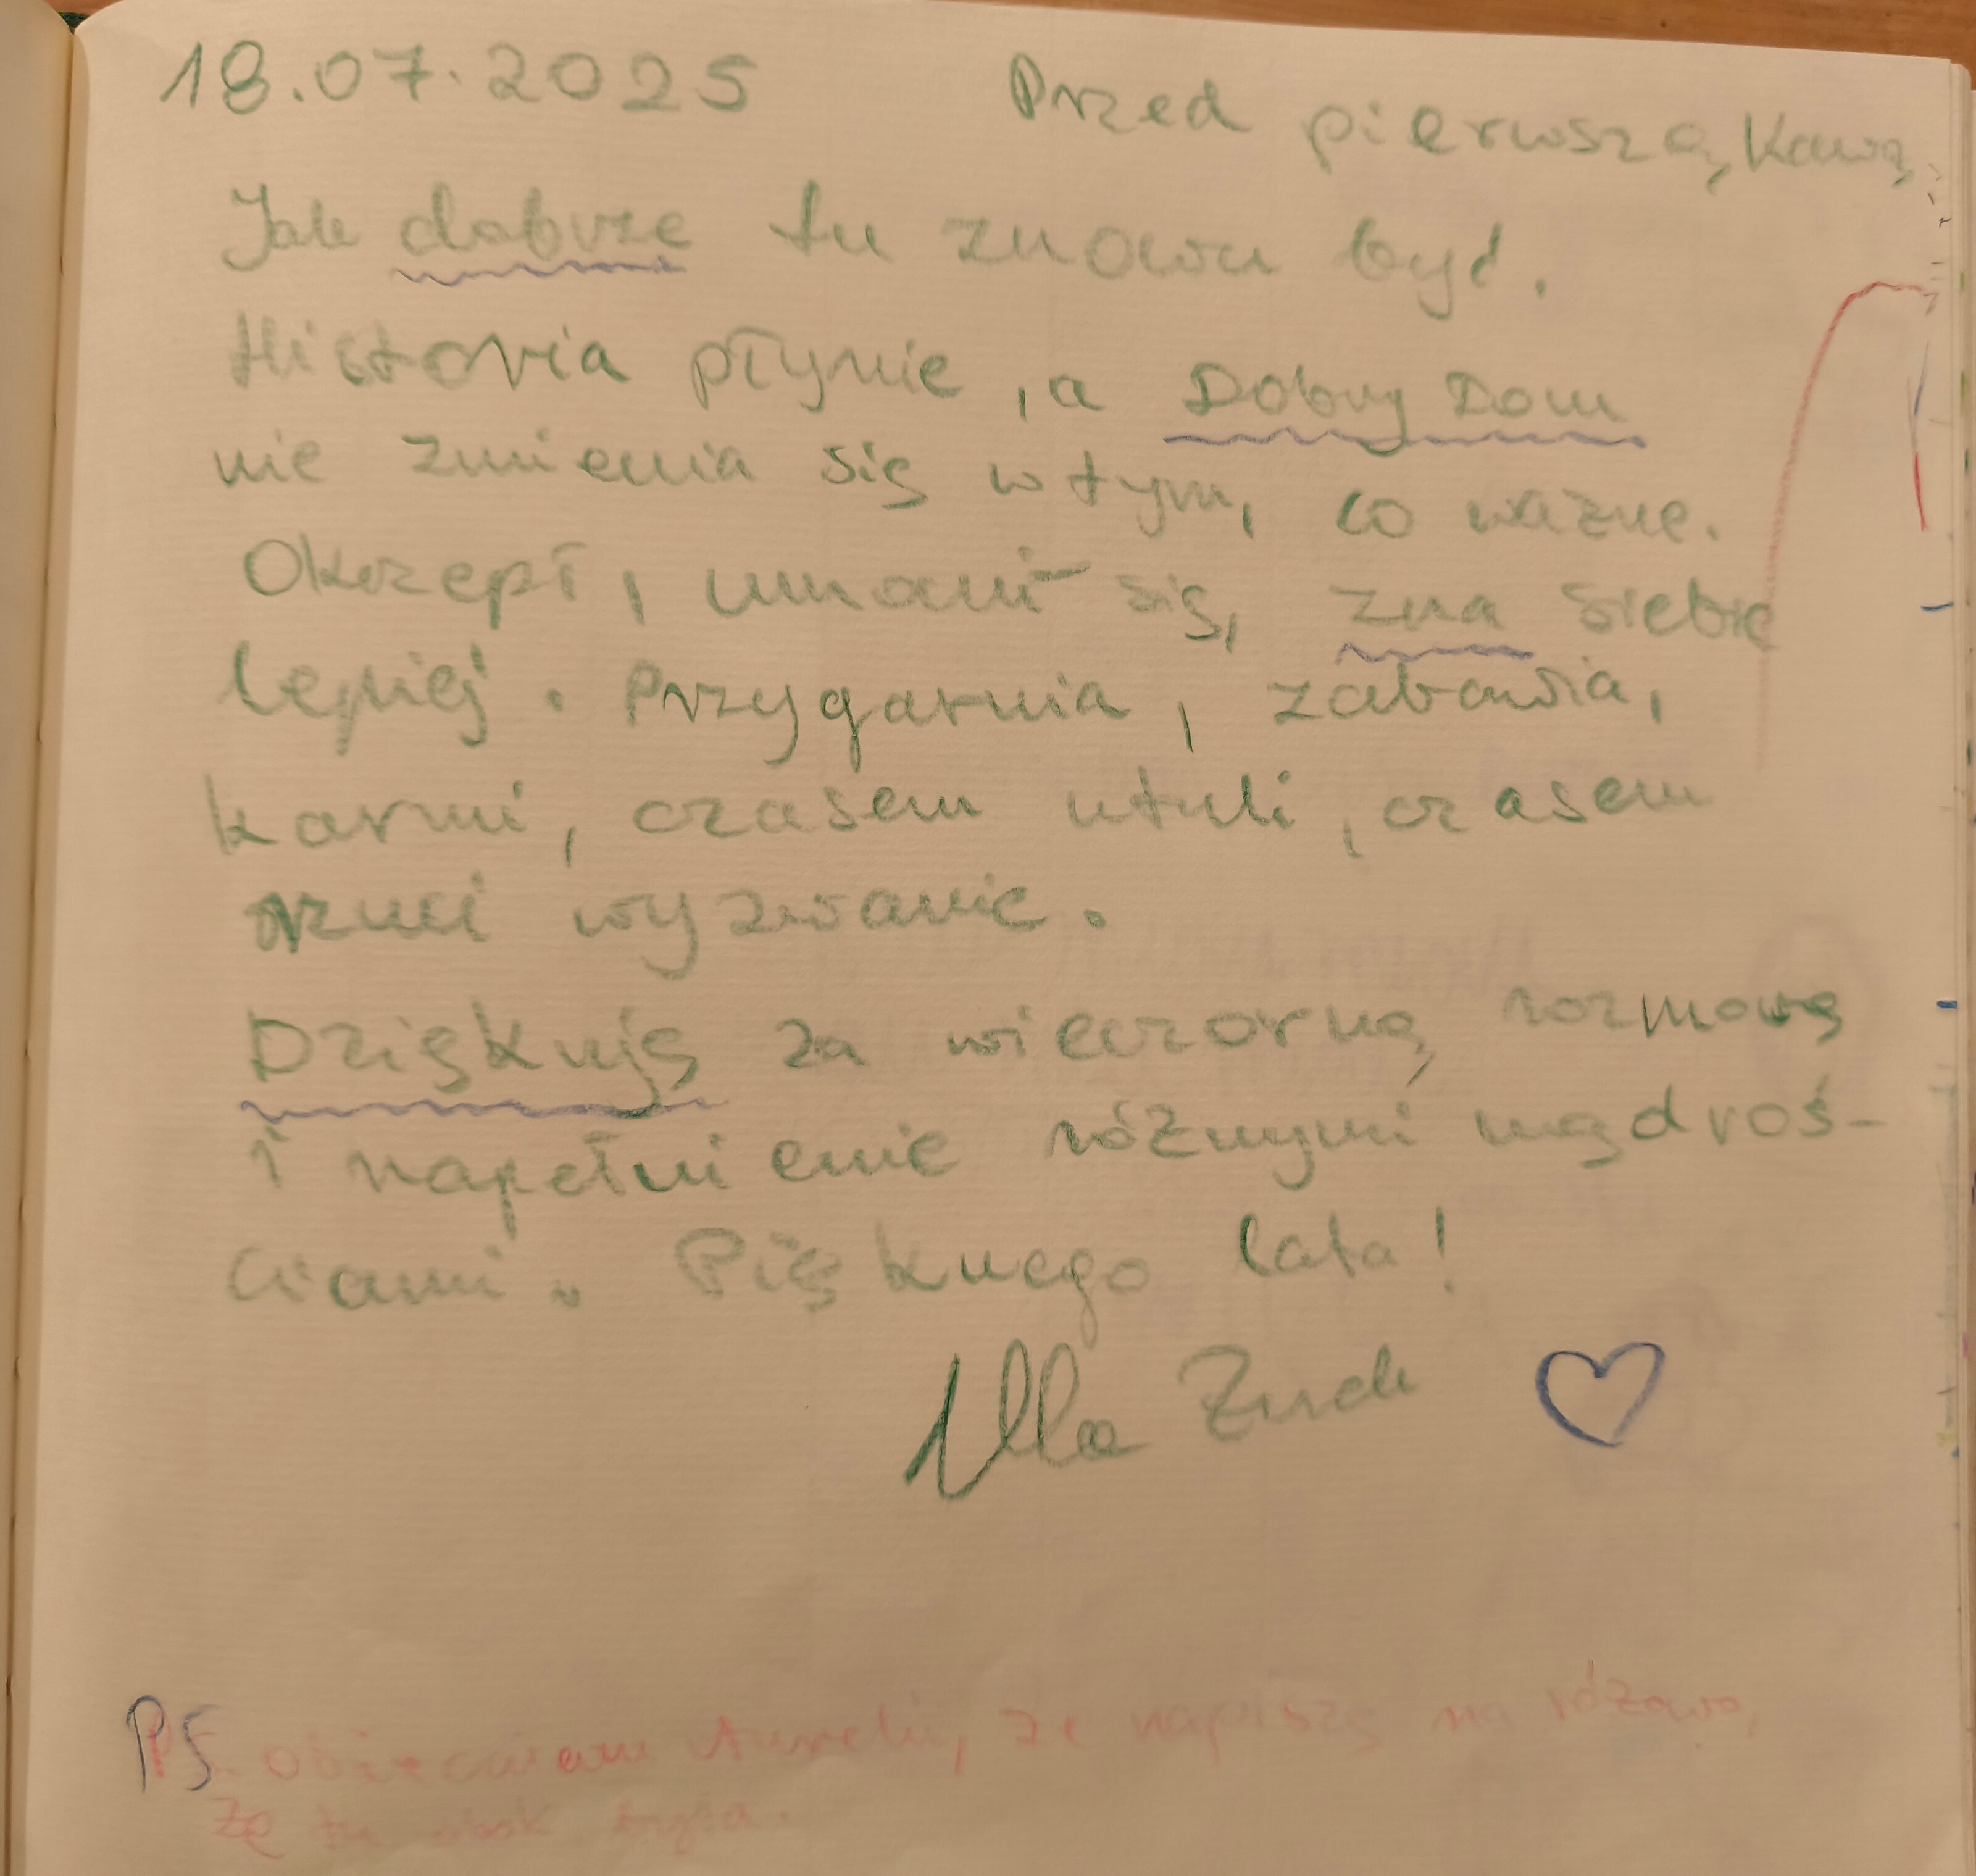 18.07.2025 Przed pierwszą kawą
Jak dobrze tu znowu być.
Historia płynie, a Dobry Dom
nie zmienia się w tym, co ważne.
Okrzepł, umościł się, zna siebie
lepiej. Przygarnia, zabawia,
karmi, czasem utuli, czasem
rzuci wyzwanie.
Dziękuję za wieczorną rozmowę
i napełnienie różnymi mądroś-
ciami. Pięknego lata!
Ula
PS. obiecałam Aurelii, że napiszę na różowo,
że tu obok